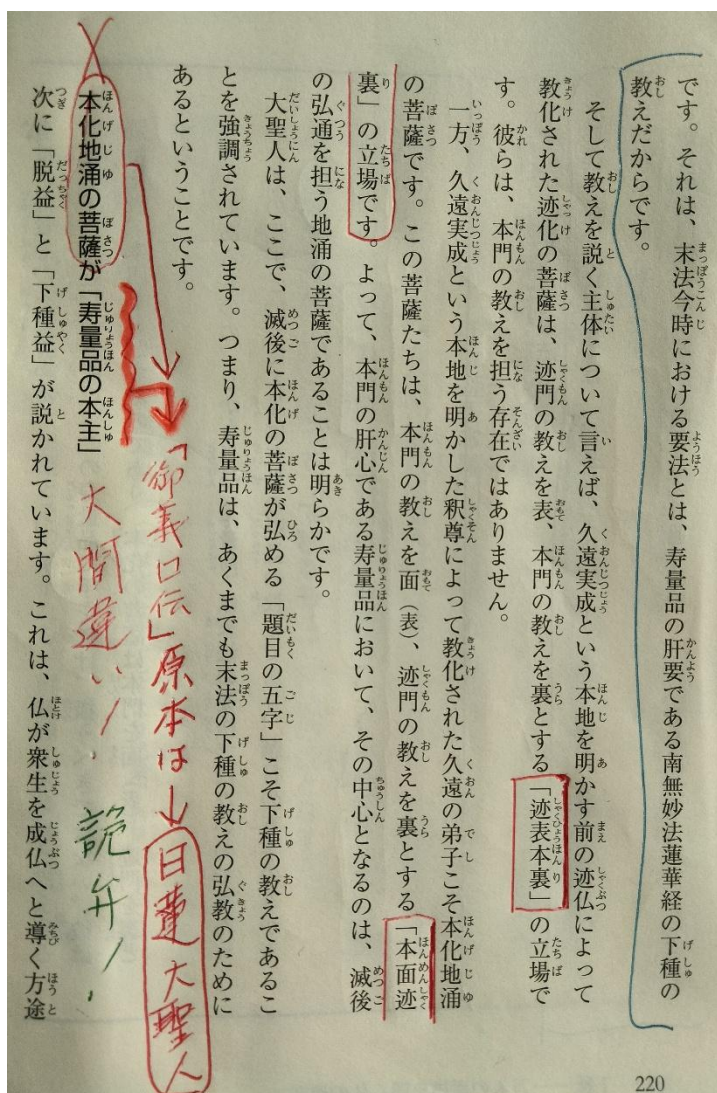 です。それは、末法今時における要法とは、寿量品の肝要である南無妙法蓮華経の下種の
教えだからです。
そして教えを説く主体について言えば、久遠実成という本地を明かす前の迹仏によって
教化された迹化の菩薩は、迹門の教えを表、本門の教えを裏とする「迹表本裏」の立場で
す。彼らは、本門の教えを担う存在ではありません。
一方、久遠実成という本地を明かした釈尊によって教化された久遠の弟子こそ本化地涌
の菩薩です。この菩薩たちは、本門の教えを面(表)、迹門の教えを裏とする「本面迹
裏」の立場です。よって、本門の肝心である寿量品において、その中心となるのは、滅後
の弘通を担う地涌の菩薩であることは明らかです。
大聖人は、ここで、滅後に本化の菩薩が弘める「題目の五字」こそ下種の教えであるこ
とを強調されています。つまり、寿量品は、あくまでも末法の下種の教えの弘教のために
あるということです。
「御義口伝」原本は→日蓮大聖人
大間違い! 詭弁!
本化地涌の菩薩が「寿量品の本主」
次に「脱益」と「下種益」が説かれています。これは、仏が衆生を成仏へと導く方途
220